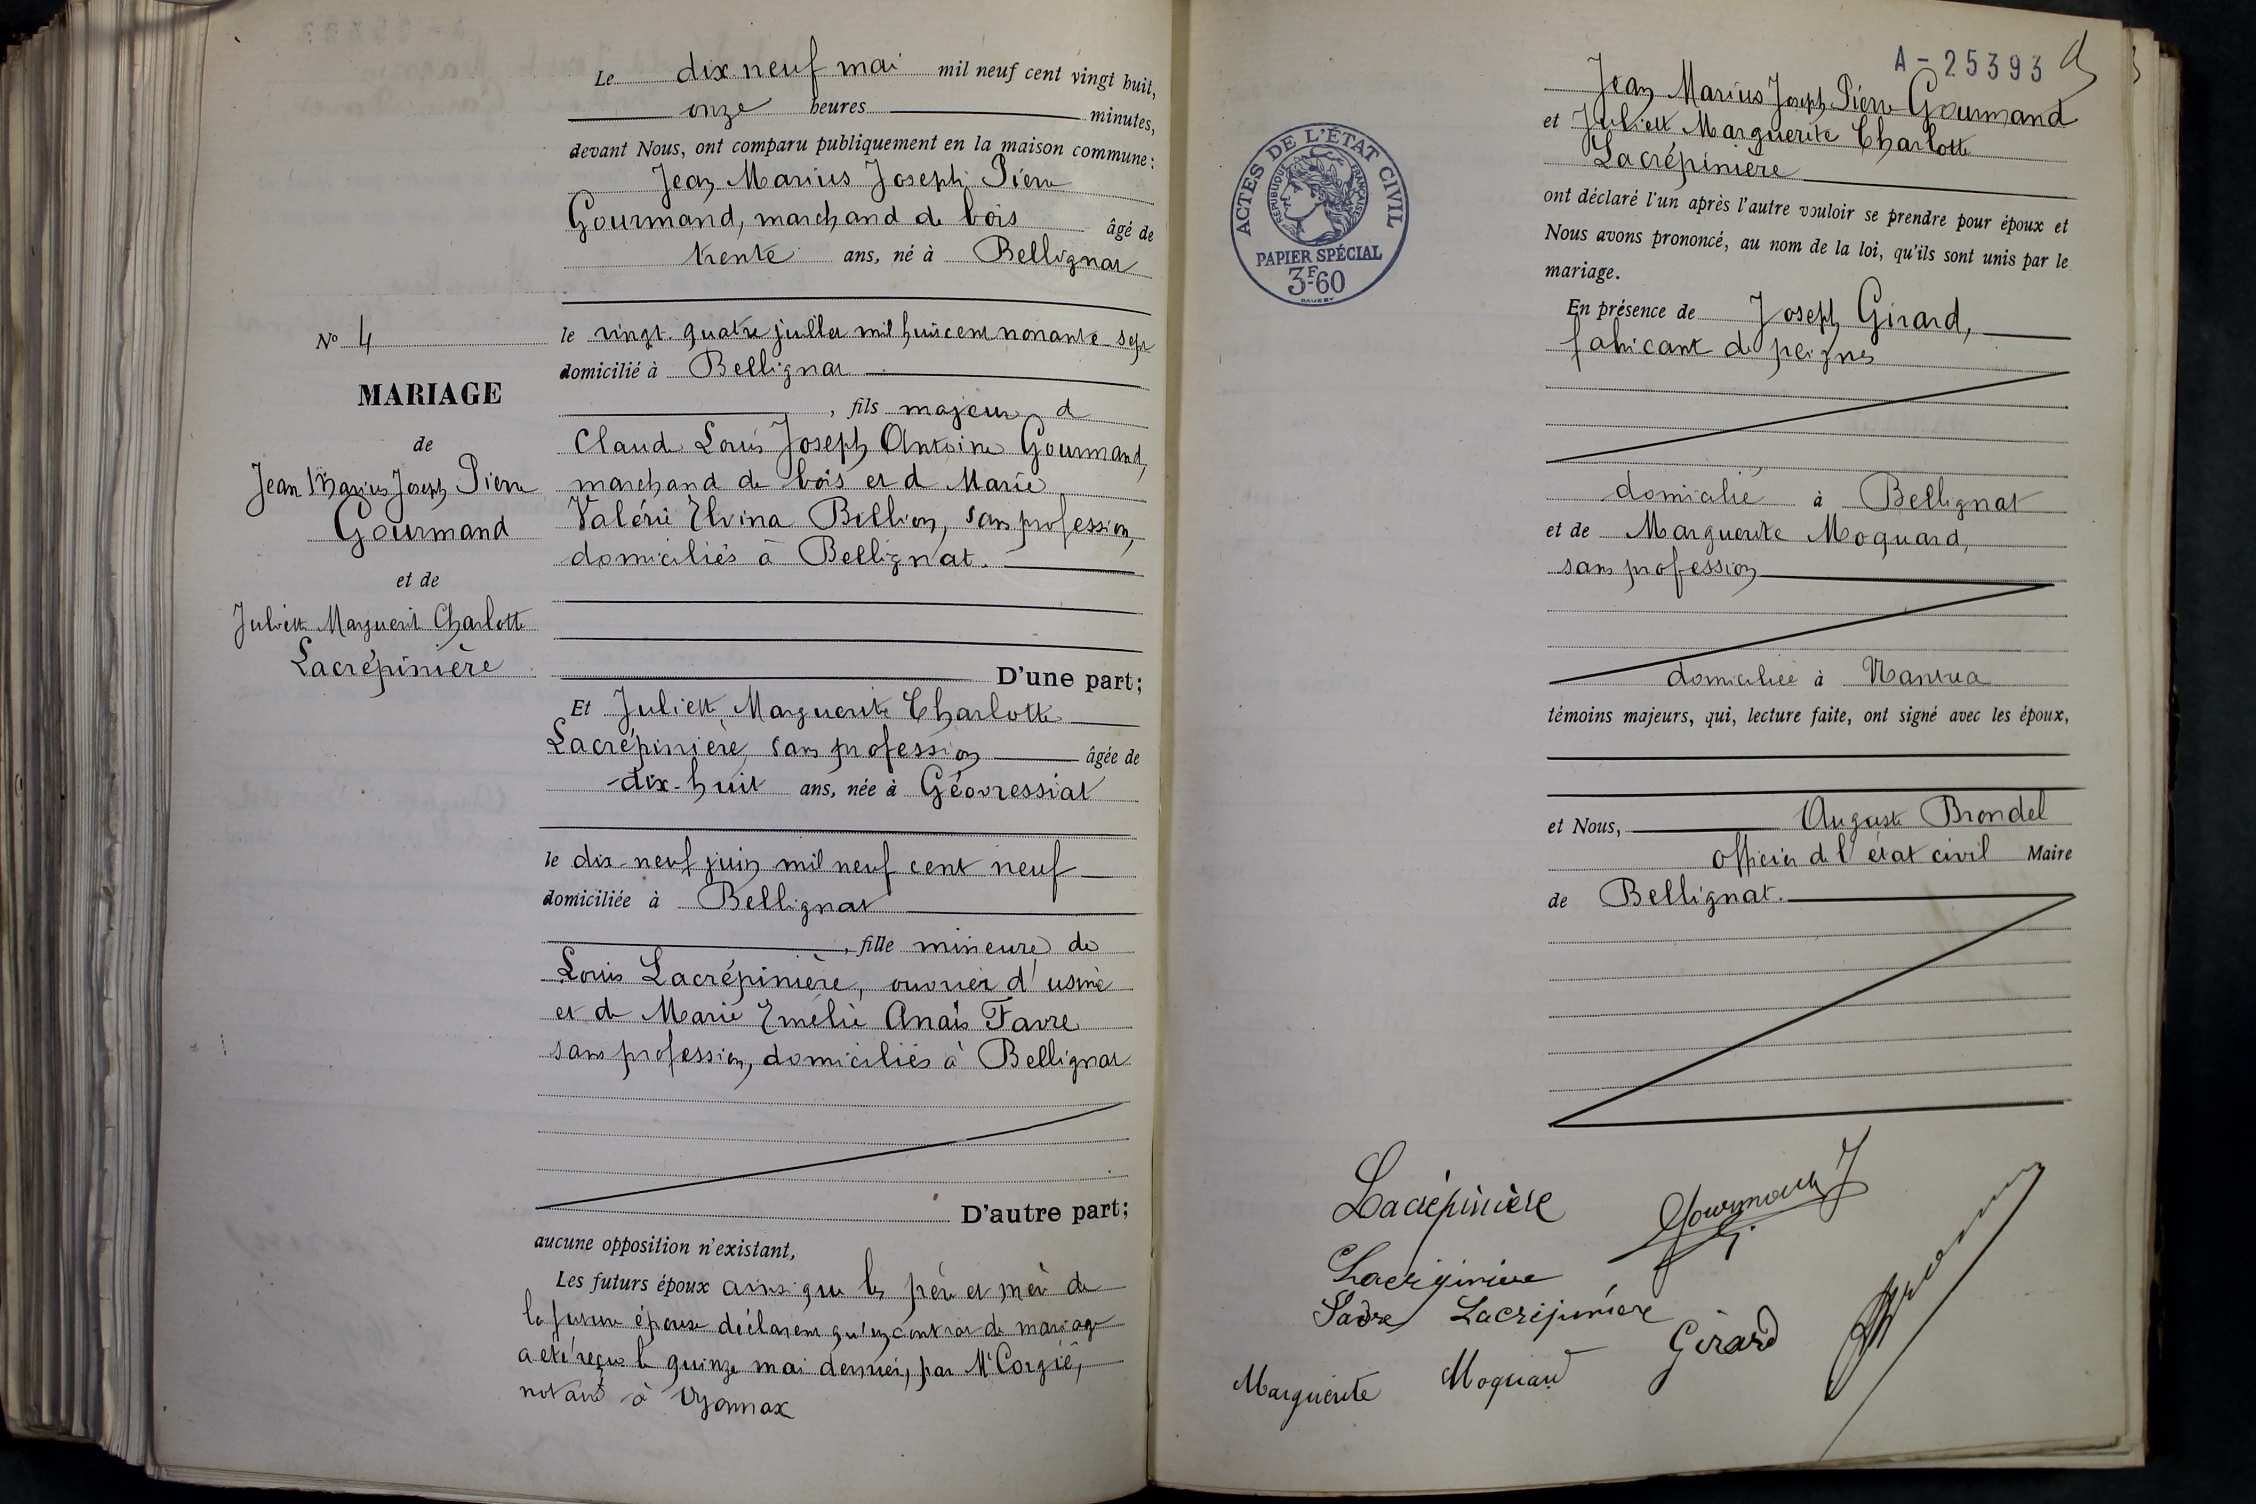 Le dix neuf mai mil neuf cent vingt huit,
onze heures minutes,
devant Nous, ont comparu publiquement en la maison commune:
Jean Marius Joseph Pierre
Gourmand, marchand de bois âgé de
trente ans, né à Bellignat
le vingt quatre juillet mil huit cent nonante sept
domicilié à Bellignat
, fils majeur d
Claude Louis Joseph Antoine Gourmand,
marchand de bois et d Marie
Valérie Elvina Billion, sans profession,
domiciliés à Bellignat.
D'une part;
Et Juliette Marguerite Charlotte
Lacrépinière, sans profession âgée de
dix-huit ans, née à Géovressiat
le dix-neuf juin mil neuf cent neuf
domiciliée à Bellignat
, fille mineure de
Louis Lacrépinière, ouvrier d'usine
et de Marie Emélie Anaïs Favre
sans profession, domiciliés à Bellignat
D'autre part;
aucune opposition n'existant,
Les futurs époux ainsi que les père et mère de
la future épouse déclarent qu'un contrat de mariage
a été reçu le quinze mai dernier, par Me Corgié,
notaire à Oyonnax
No 4
MARIAGE
de
Jean Marius Joseph Pierre
Gourmand
et de
Juliette Marguerite Charlotte
Lacrépinière
A-25393
ACTES DE L'ÉTAT CIVIL
RÉPUBLIQUE FRANÇAISE
PAPIER SPÉCIAL
3F-60
Jean Marius Joseph Pierre Gourmand
et Juliette Marguerite Charlotte
Lacrépinière
ont déclaré l'un après l'autre vouloir se prendre pour époux et
Nous avons prononcé, au nom de la loi, qu'ils sont unis par le
mariage.
En présence de Joseph Girard,
fabricant de peignes
domicilié à Bellignat
et de Marguerite Moquard,
sans profession
domiciliée à Nantua
témoins majeurs, qui, lecture faite, ont signé avec les époux,
et Nous, Auguste Brondel
officier de l'état civil Maire
de Bellignat.
Lacrépinière Gourmand J
Lacrépinière
Favre Lacrépinière
Girard
Marguerite Moquard